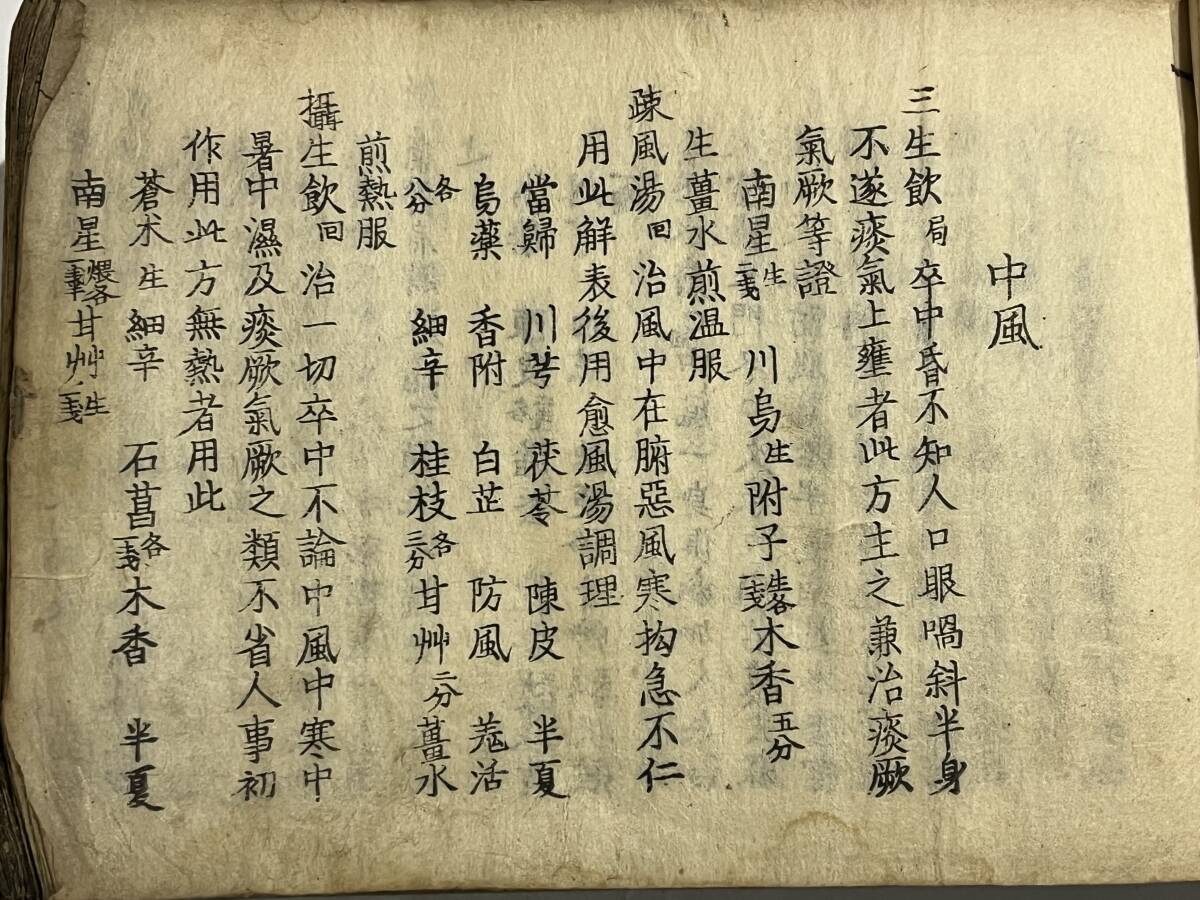 中風
三生飲局 卒中昏不知人口眼喎斜半身
不遂痰氣上壅者此方主之兼治痰厥
氣厥等證
南星生二戔 川烏生 附子生各一戔 木香五分
生薑水煎温服
疎風湯回 治風中在腑惡風寒拘急不仁
用此解表後用愈風湯調理
當歸 川芎 茯苓 陳皮 半夏
烏藥 香附 白芷 防風 羗活
各八分 細辛 桂枝各三分 甘艸二分 薑水
煎熱服
攝生飲回 治一切卒中不論中風中寒中
暑中濕及痰厥氣厥之類不省人事初
作用此方無熱者用此
蒼朮生 細辛 石菖各一戔 木香 半夏
南星煨各一戔半 甘艸生一戔